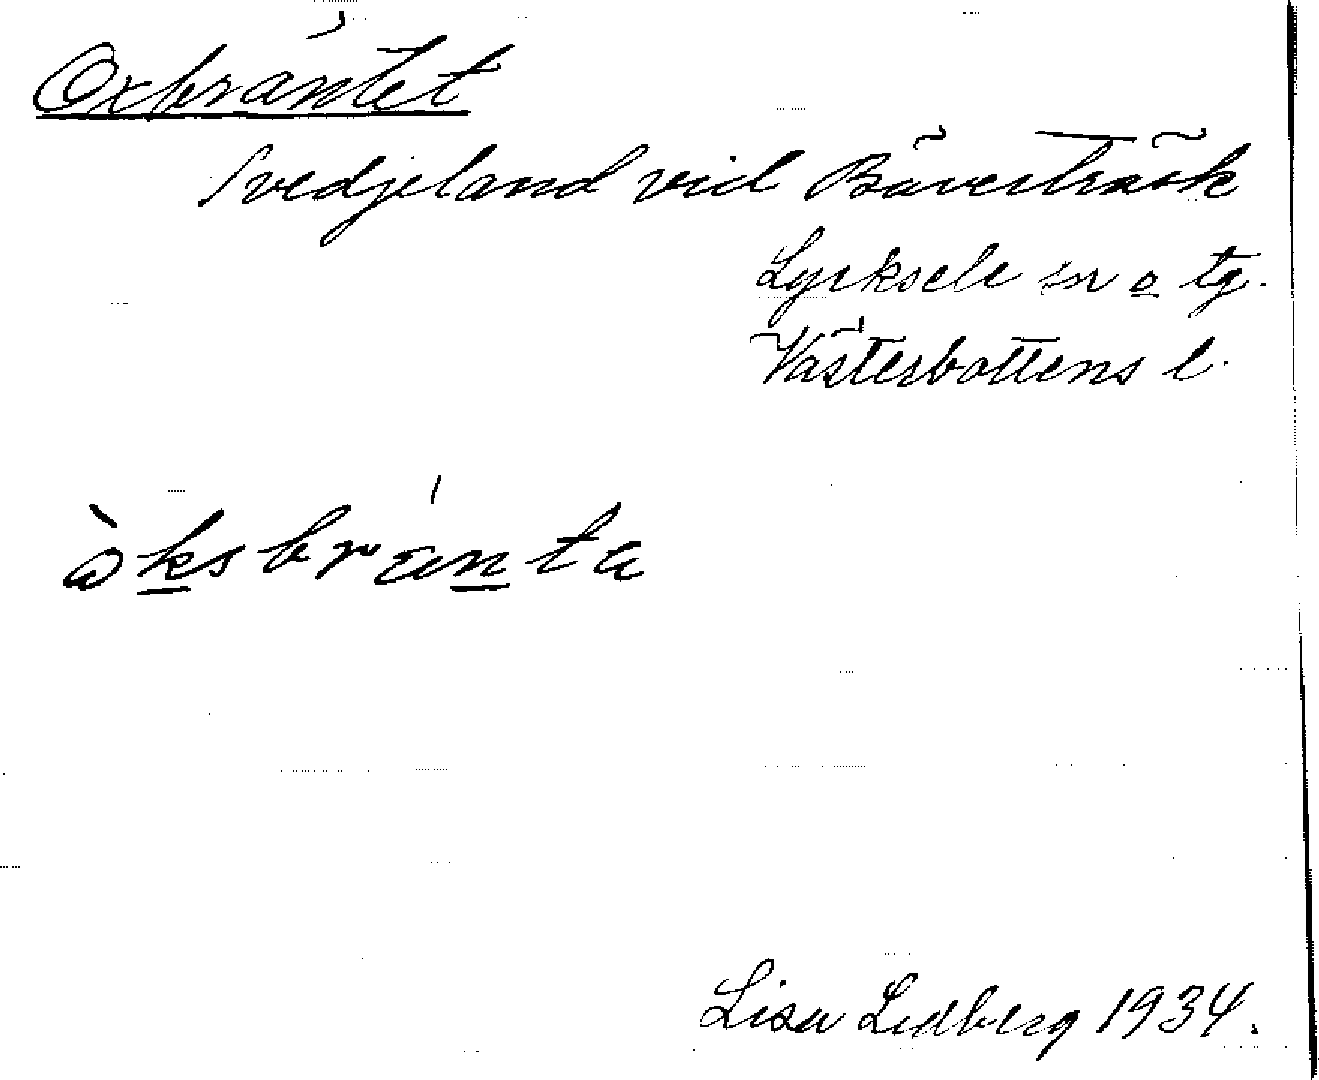 Oxbräntet
Svedjeland vid Bäverträsk
Lycksele sn o tg.
Västerbottens l.
òksbränta
Lisa Lidberg 1934.